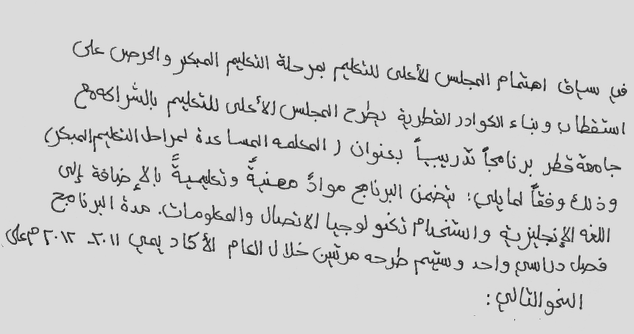 في سياق اهتمام المجلس الأعلى للتعليم بمرحلة التعليم المبكر والحرص على
استقطاب وبناء الكوادر القطرية يطرح المجلس الأعلى للتعليم بالشراكة مع
جامعة قطر برنامجاً تدريبياً بعنوان ( المعلمه المساعدة لمراحل التعليم المبكر)
وذلك وفقاً لمايلي: يتضمن البرنامج موادً مهنيةً وتعليميةً بالإضافة إلى
اللغه الإنجليزية واستخدام تكنولوجيا الاتصال والمعلومات. مدة البرنامج
فصل دراسي واحد وسيتم طرحه مرتين خلال العام الأكاديمي ٢٠١١- ٢٠١٢ م على
النحو التالي: